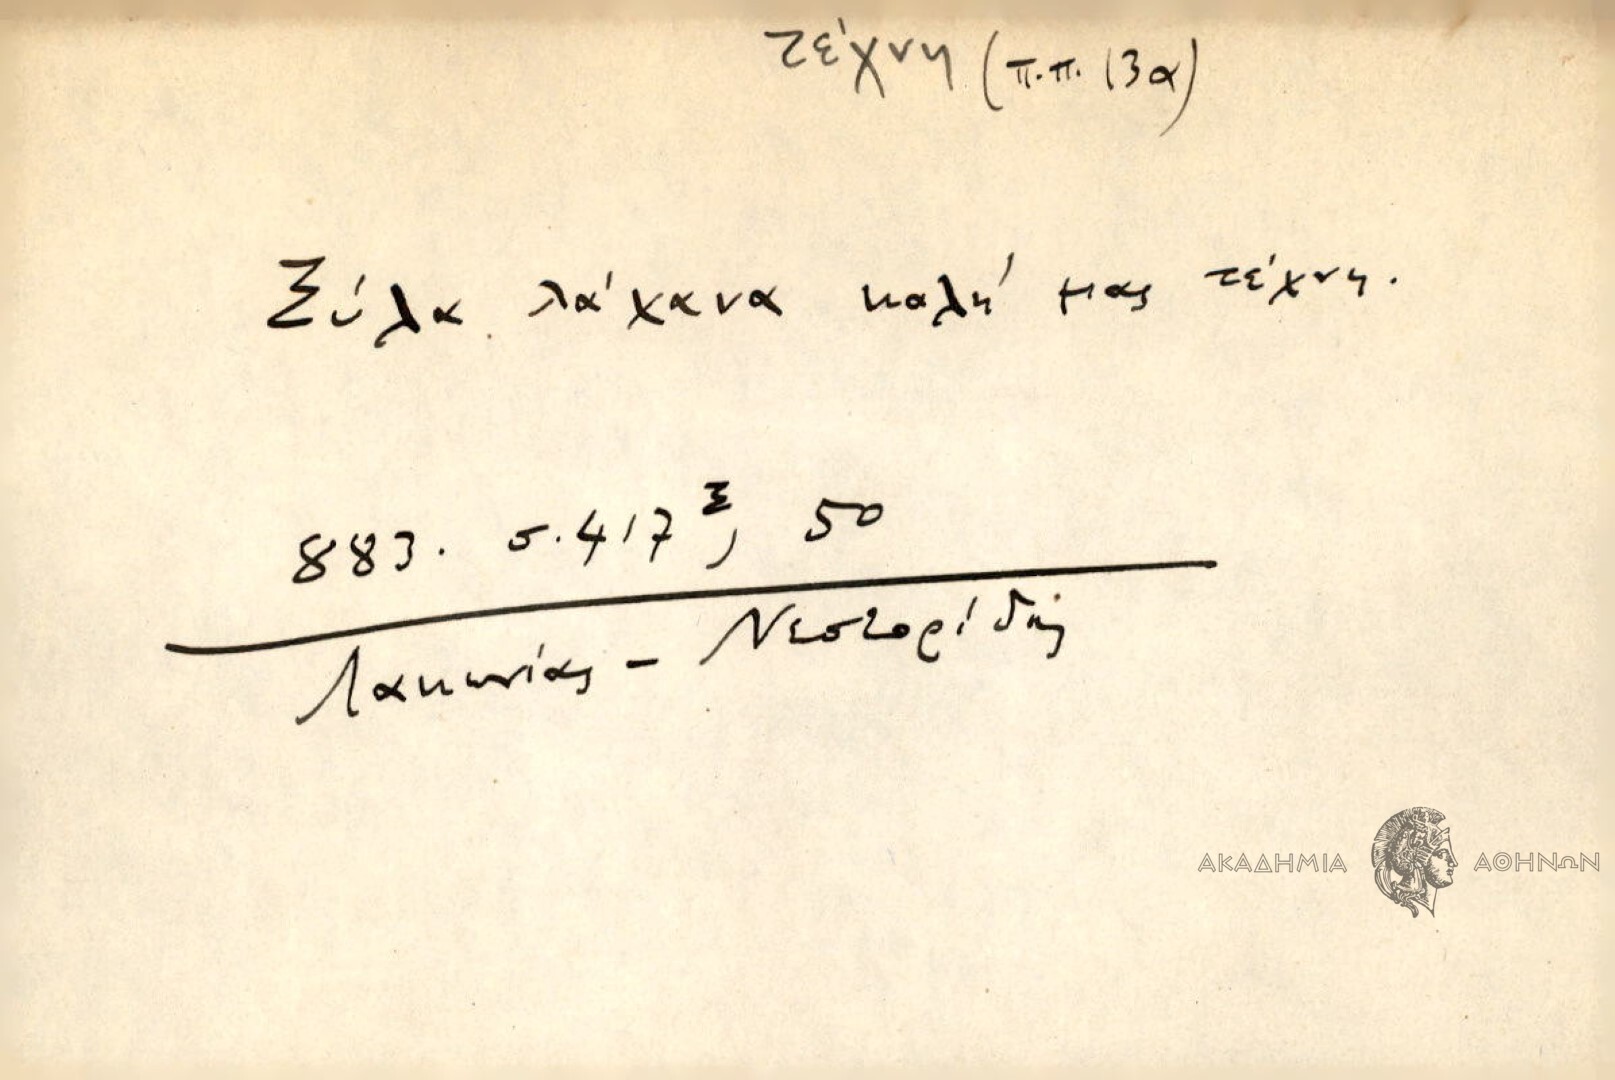 τέχνη (π.π. 13α)
Ξύλα λάχανα καλή μας τέχνη.
883. σ. 417Ξ, 50
Λακωνίας - Νεστορίδης
ΑΚΑΔΗΜΙΑ ΑΘΗΝΩΝ